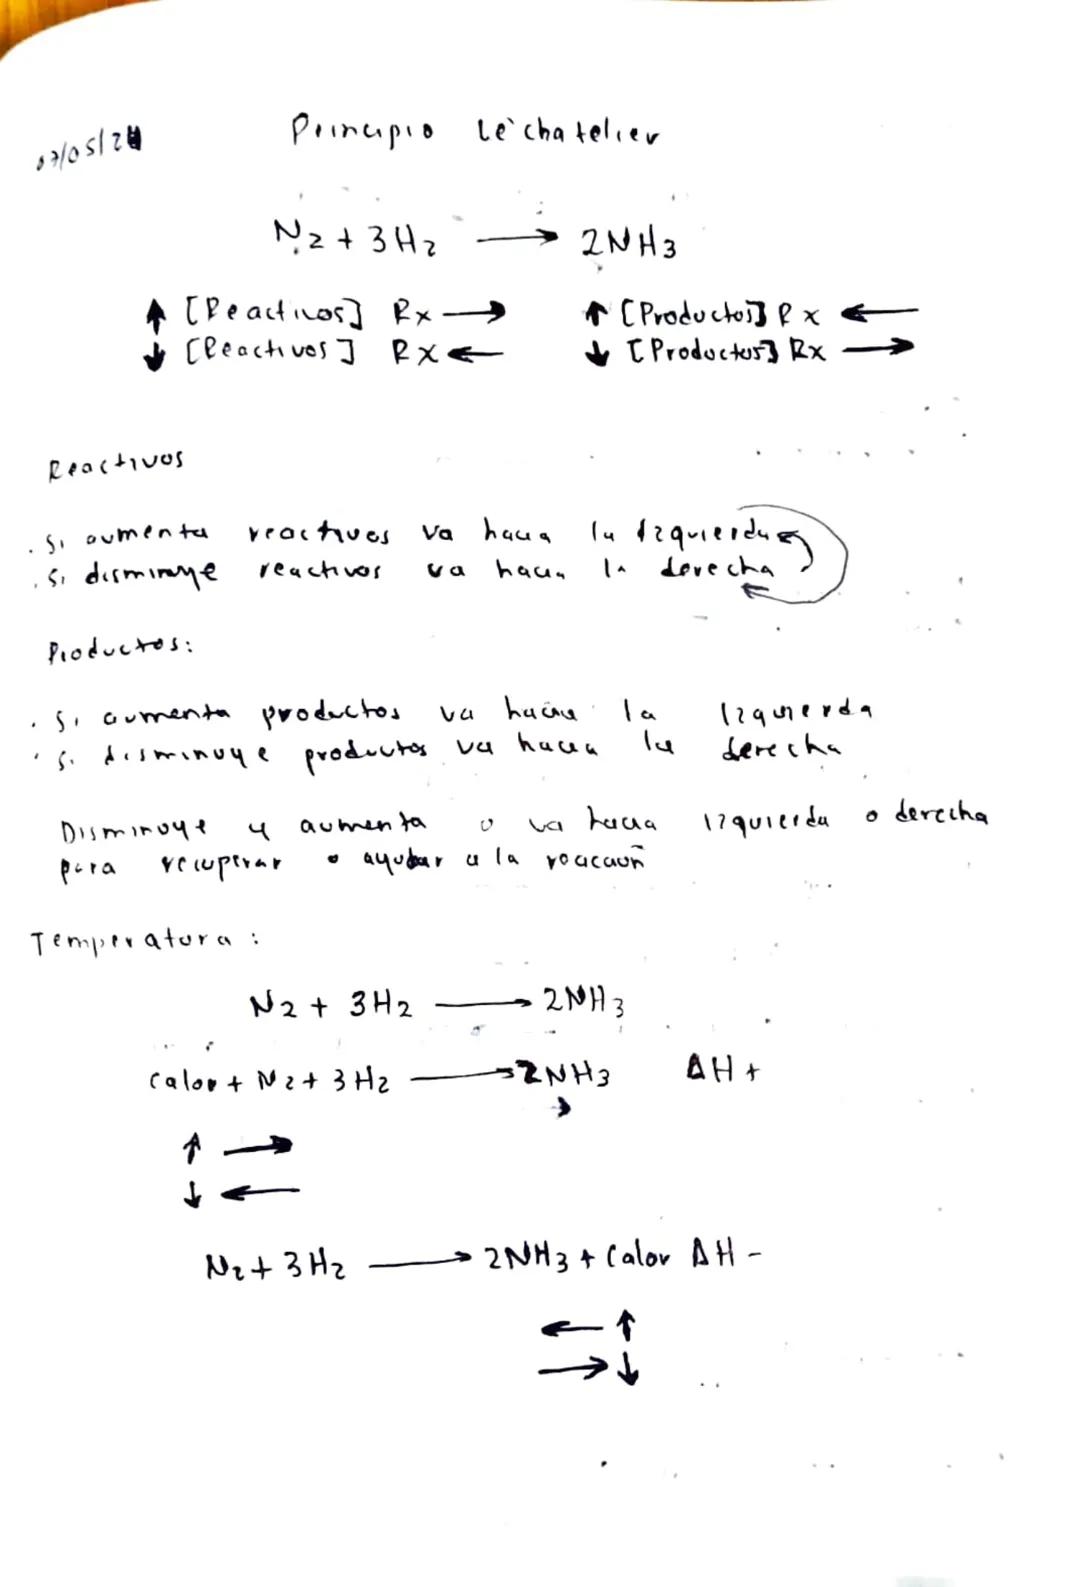 07/05/24
Principio Le'chatelier
N2 + 3H2 → 2NH3
↑ [Reactivos] Rx → ↑ [Productos] Rx ←
↓ [Reactivos] Rx ← ↓ [Productos] Rx →
Reactivos
. Si aumenta reactivos va hacia la izquierda
. Si disminuye reactivos va hacia la derecha
Productos:
. Si aumenta productos va hacia la izquierda
. Si disminuye productos va hacia la derecha
Disminuye y aumenta o va hacia izquierda o derecha
para recuperar o ayudar a la reacción
Temperatura:
N2 + 3H2 → 2NH3
Calor + N2 + 3H2 → 2NH3 ΔH +
→
↑ →
↓ ←
N2 + 3H2 → 2NH3 + Calor ΔH -
← ↑
→ ↓